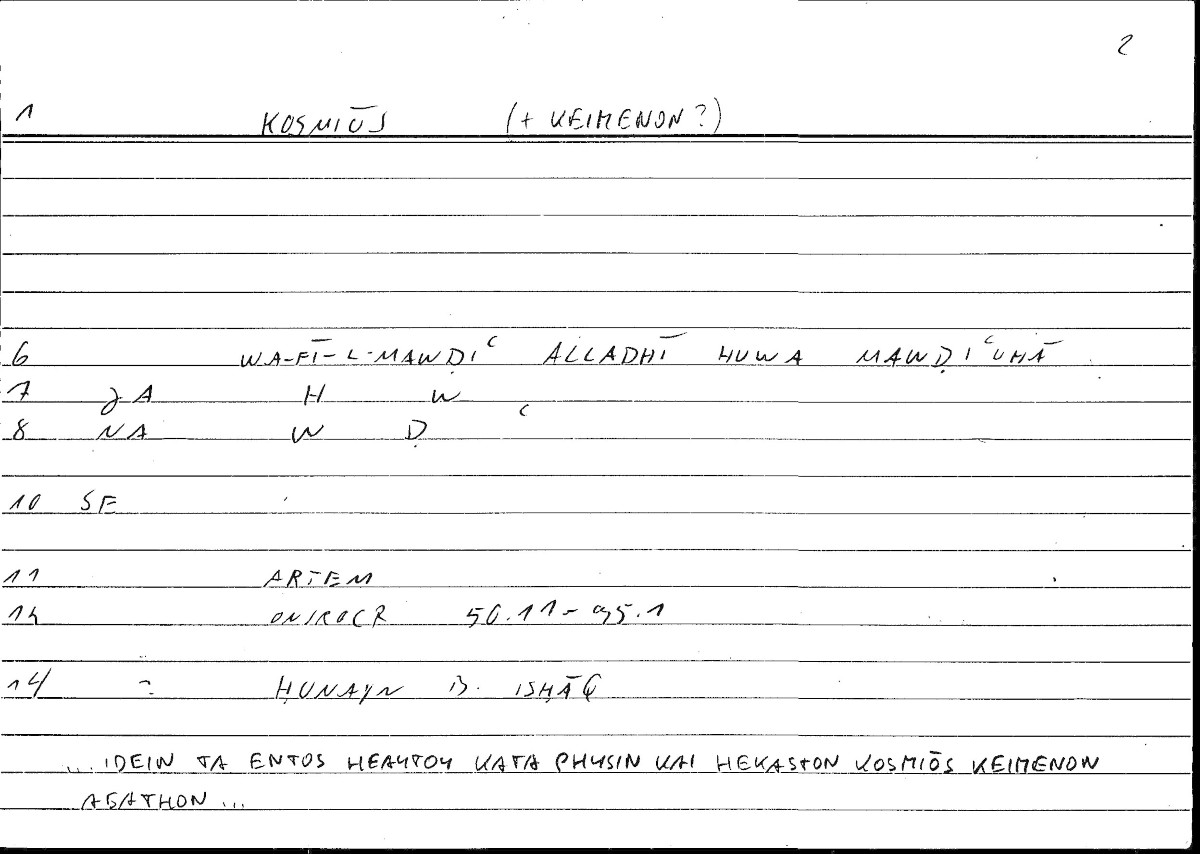 2
1 KOSMIŌS (+ KEIMENON?)
6 WA-FĪ-L-MAWḌIʿ ALLADHĪ HUWA MAWḌIʿUHĀ
7 GA H W
8 NA W Ḍ ʿ
10 SF
11 ARTEM
12 ONIROCR 50.11-95.1
14 ~ ḤUNAYN B. ISḤĀQ
... IDEIN TA ENTOS HEAYTOY KATA PHYSIN KAI HEKASTON KOSMIŌS KEIMENON
AGATHON ...